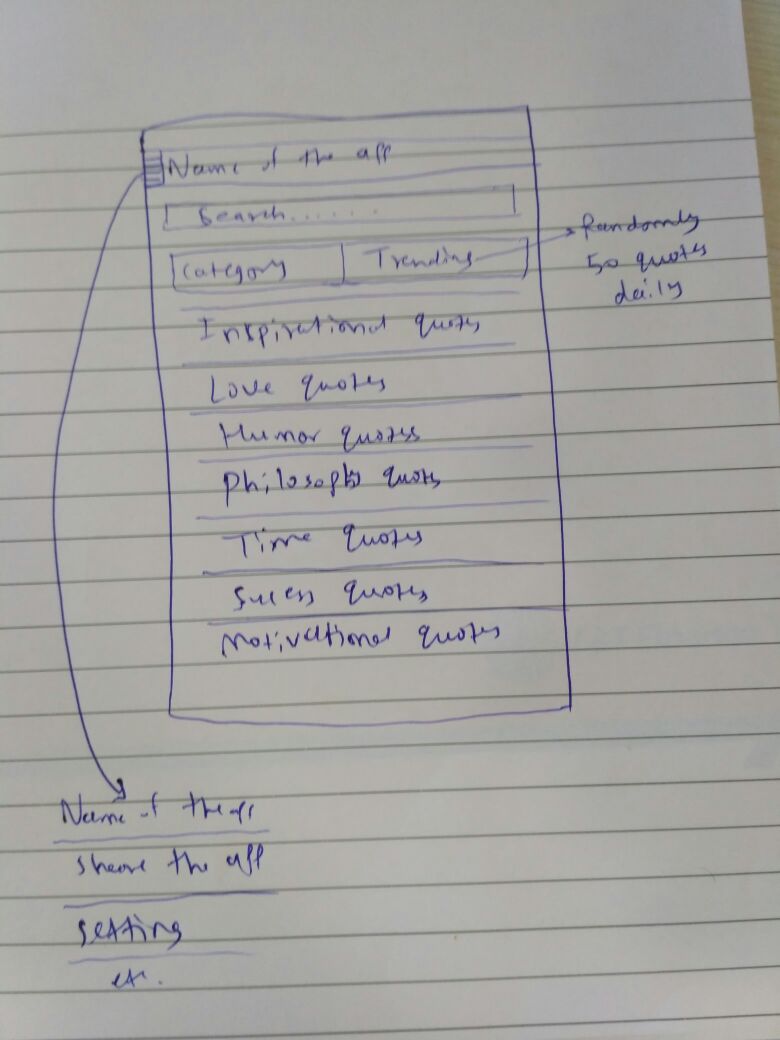 Name of the app
Search......
Category
Trending
Randomly
50 quotes
daily
Inspirational quotes
Love quotes
Humor quotes
Philosophy quotes
Time quotes
Sucess quotes
Motivational quotes
Name of the app
Share the app
Setting
etc.